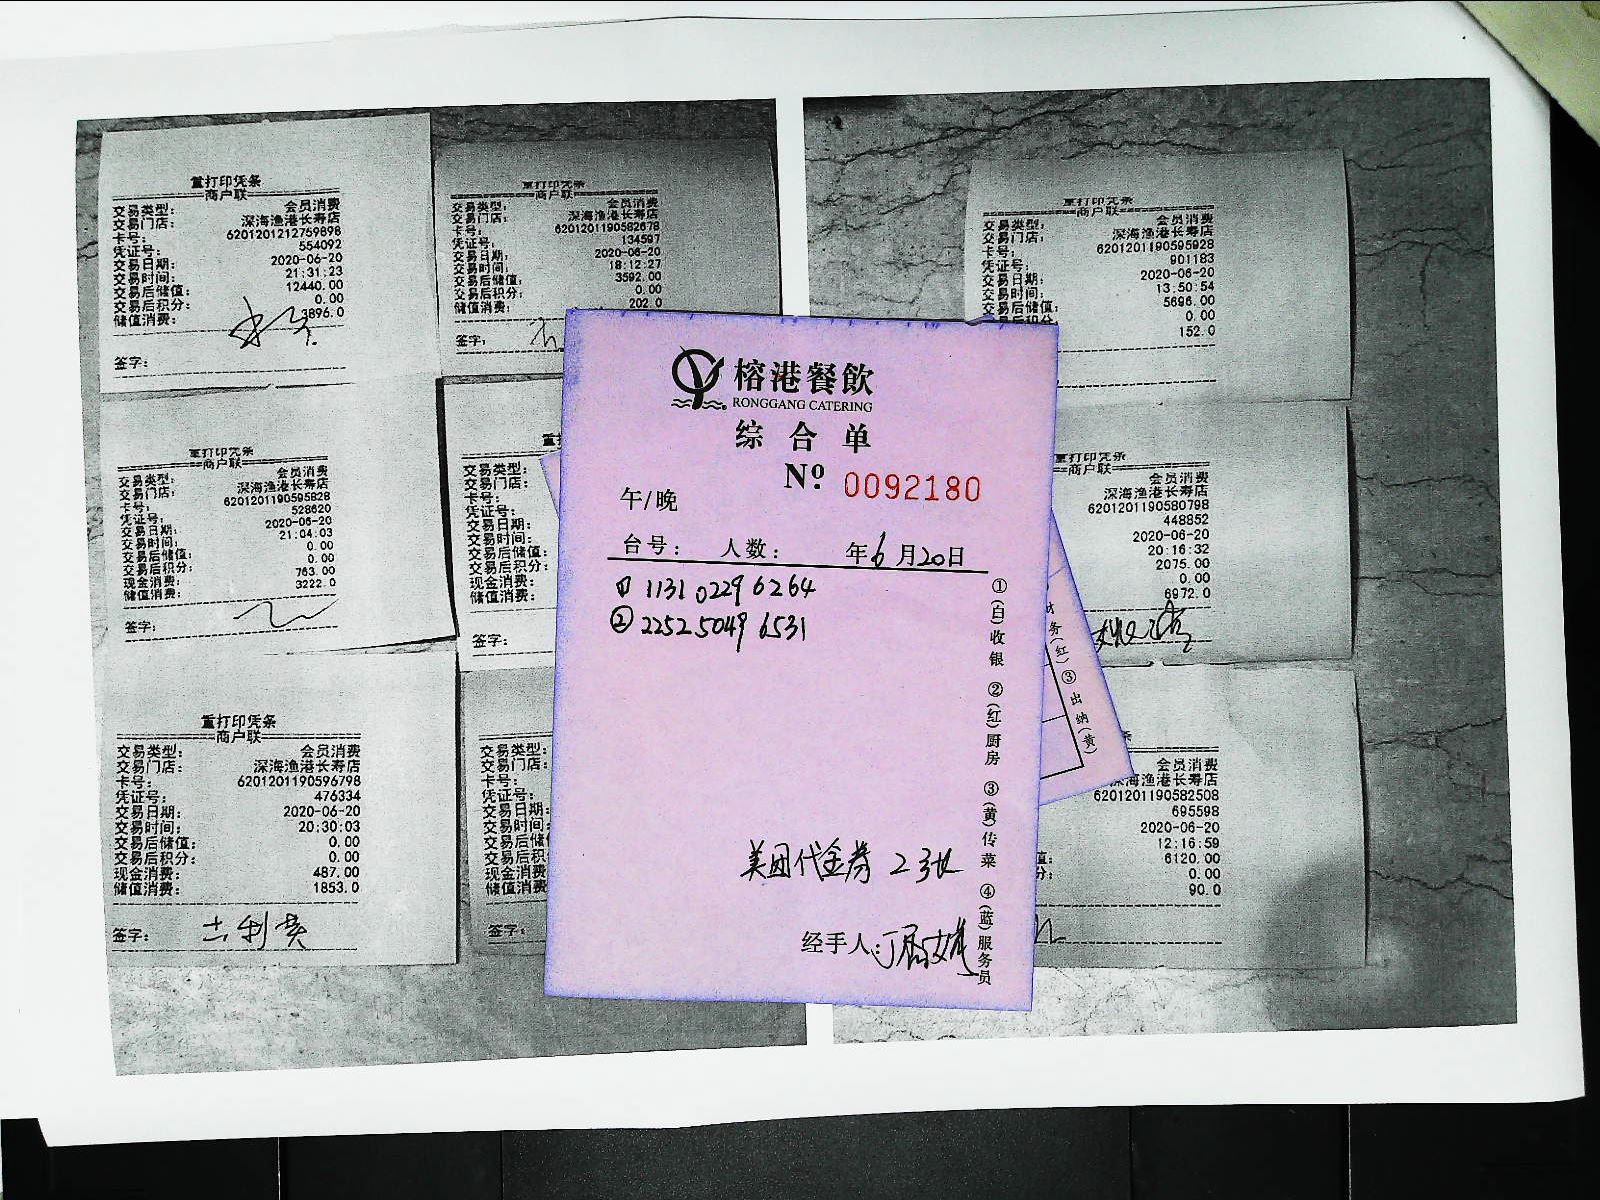 重打印凭条
商户联
交易类型: 会员消费
交易门店: 深海渔港长寿店
卡号: 6201201212759898
凭证号: 554092
交易日期: 2020-06-20
交易时间: 21:31:23
交易后储值: 12440.00
交易后积分: 0.00
储值消费: 3896.0
签字:
重打印凭条
商户联
交易类型: 会员消费
交易门店: 深海渔港长寿店
卡号: 6201201190582678
凭证号: 134597
交易日期: 2020-06-20
交易时间: 18:12:27
交易后储值: 3592.00
交易后积分: 0.00
储值消费: 202.0
签字:
重打印凭条
商户联
交易类型: 会员消费
交易门店: 深海渔港长寿店
卡号: 6201201190595928
凭证号: 901183
交易日期: 2020-06-20
交易时间: 13:50:54
交易后储值: 5696.00
交易后积分: 0.00
152.0
重打印凭条
商户联
交易类型: 会员消费
交易门店: 深海渔港长寿店
卡号: 6201201190595828
凭证号: 528620
交易日期: 2020-06-20
交易时间: 21:04:03
交易后储值: 0.00
交易后积分: 0.00
现金消费: 763.00
储值消费: 3222.0
签字:
重打
交易类型:
交易门店:
卡号:
凭证号:
交易日期:
交易时间:
交易后储值:
交易后积分:
现金消费:
储值消费:
签字:
重打印凭条
商户联
会员消费
深海渔港长寿店
6201201190580798
448852
2020-06-20
20:16:32
2075.00
0.00
6972.0
重打印凭条
商户联
交易类型: 会员消费
交易门店: 深海渔港长寿店
卡号: 6201201190596798
凭证号: 476334
交易日期: 2020-06-20
交易时间: 20:30:03
交易后储值: 0.00
交易后积分: 0.00
现金消费: 487.00
储值消费: 1853.0
签字: 古利贵
交易类型:
交易门店:
卡号:
凭证号:
交易日期:
交易时间:
交易后储值
交易后积分
现金消费
储值消费
签字:
条
会员消费
深海渔港长寿店
6201201190582508
695598
2020-06-20
12:16:59
值: 6120.00
分: 0.00
90.0
榕港餐飲
RONGGANG CATERING
综合单
Nº 0092180
午/晚
台号: 人数: 年6月20日
① 1131 0229 6264
② 2252 5049 6531
美团代金券 2张
经手人:
①(白)收银 ②(红)厨房 ③(黄)传菜 ④(蓝)服务员
财务(红) ③出纳(黄)